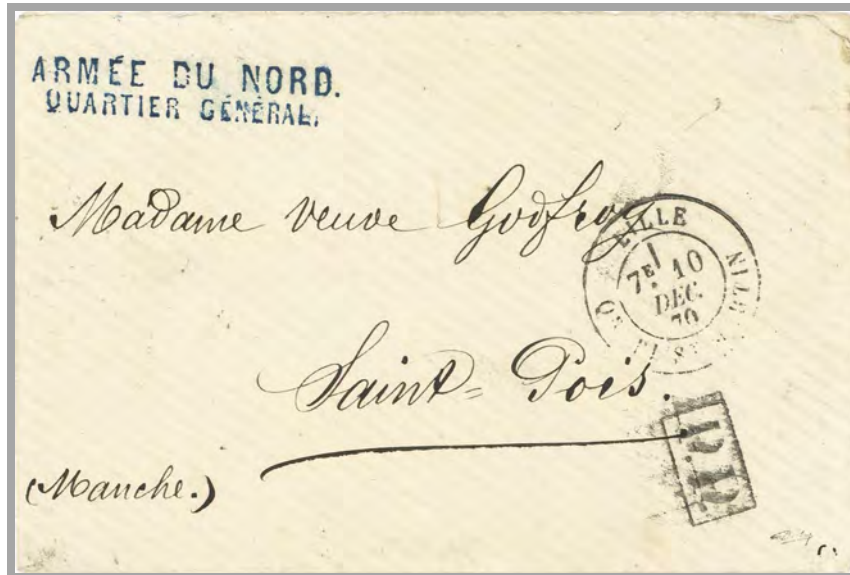 ARMÉE DU NORD.
QUARTIER GÉNÉRAL.
Madame veuve Godfroy
LILLE
7E
10
DÉC.
70
Saint-Pois.
P.P.
(Manche.)